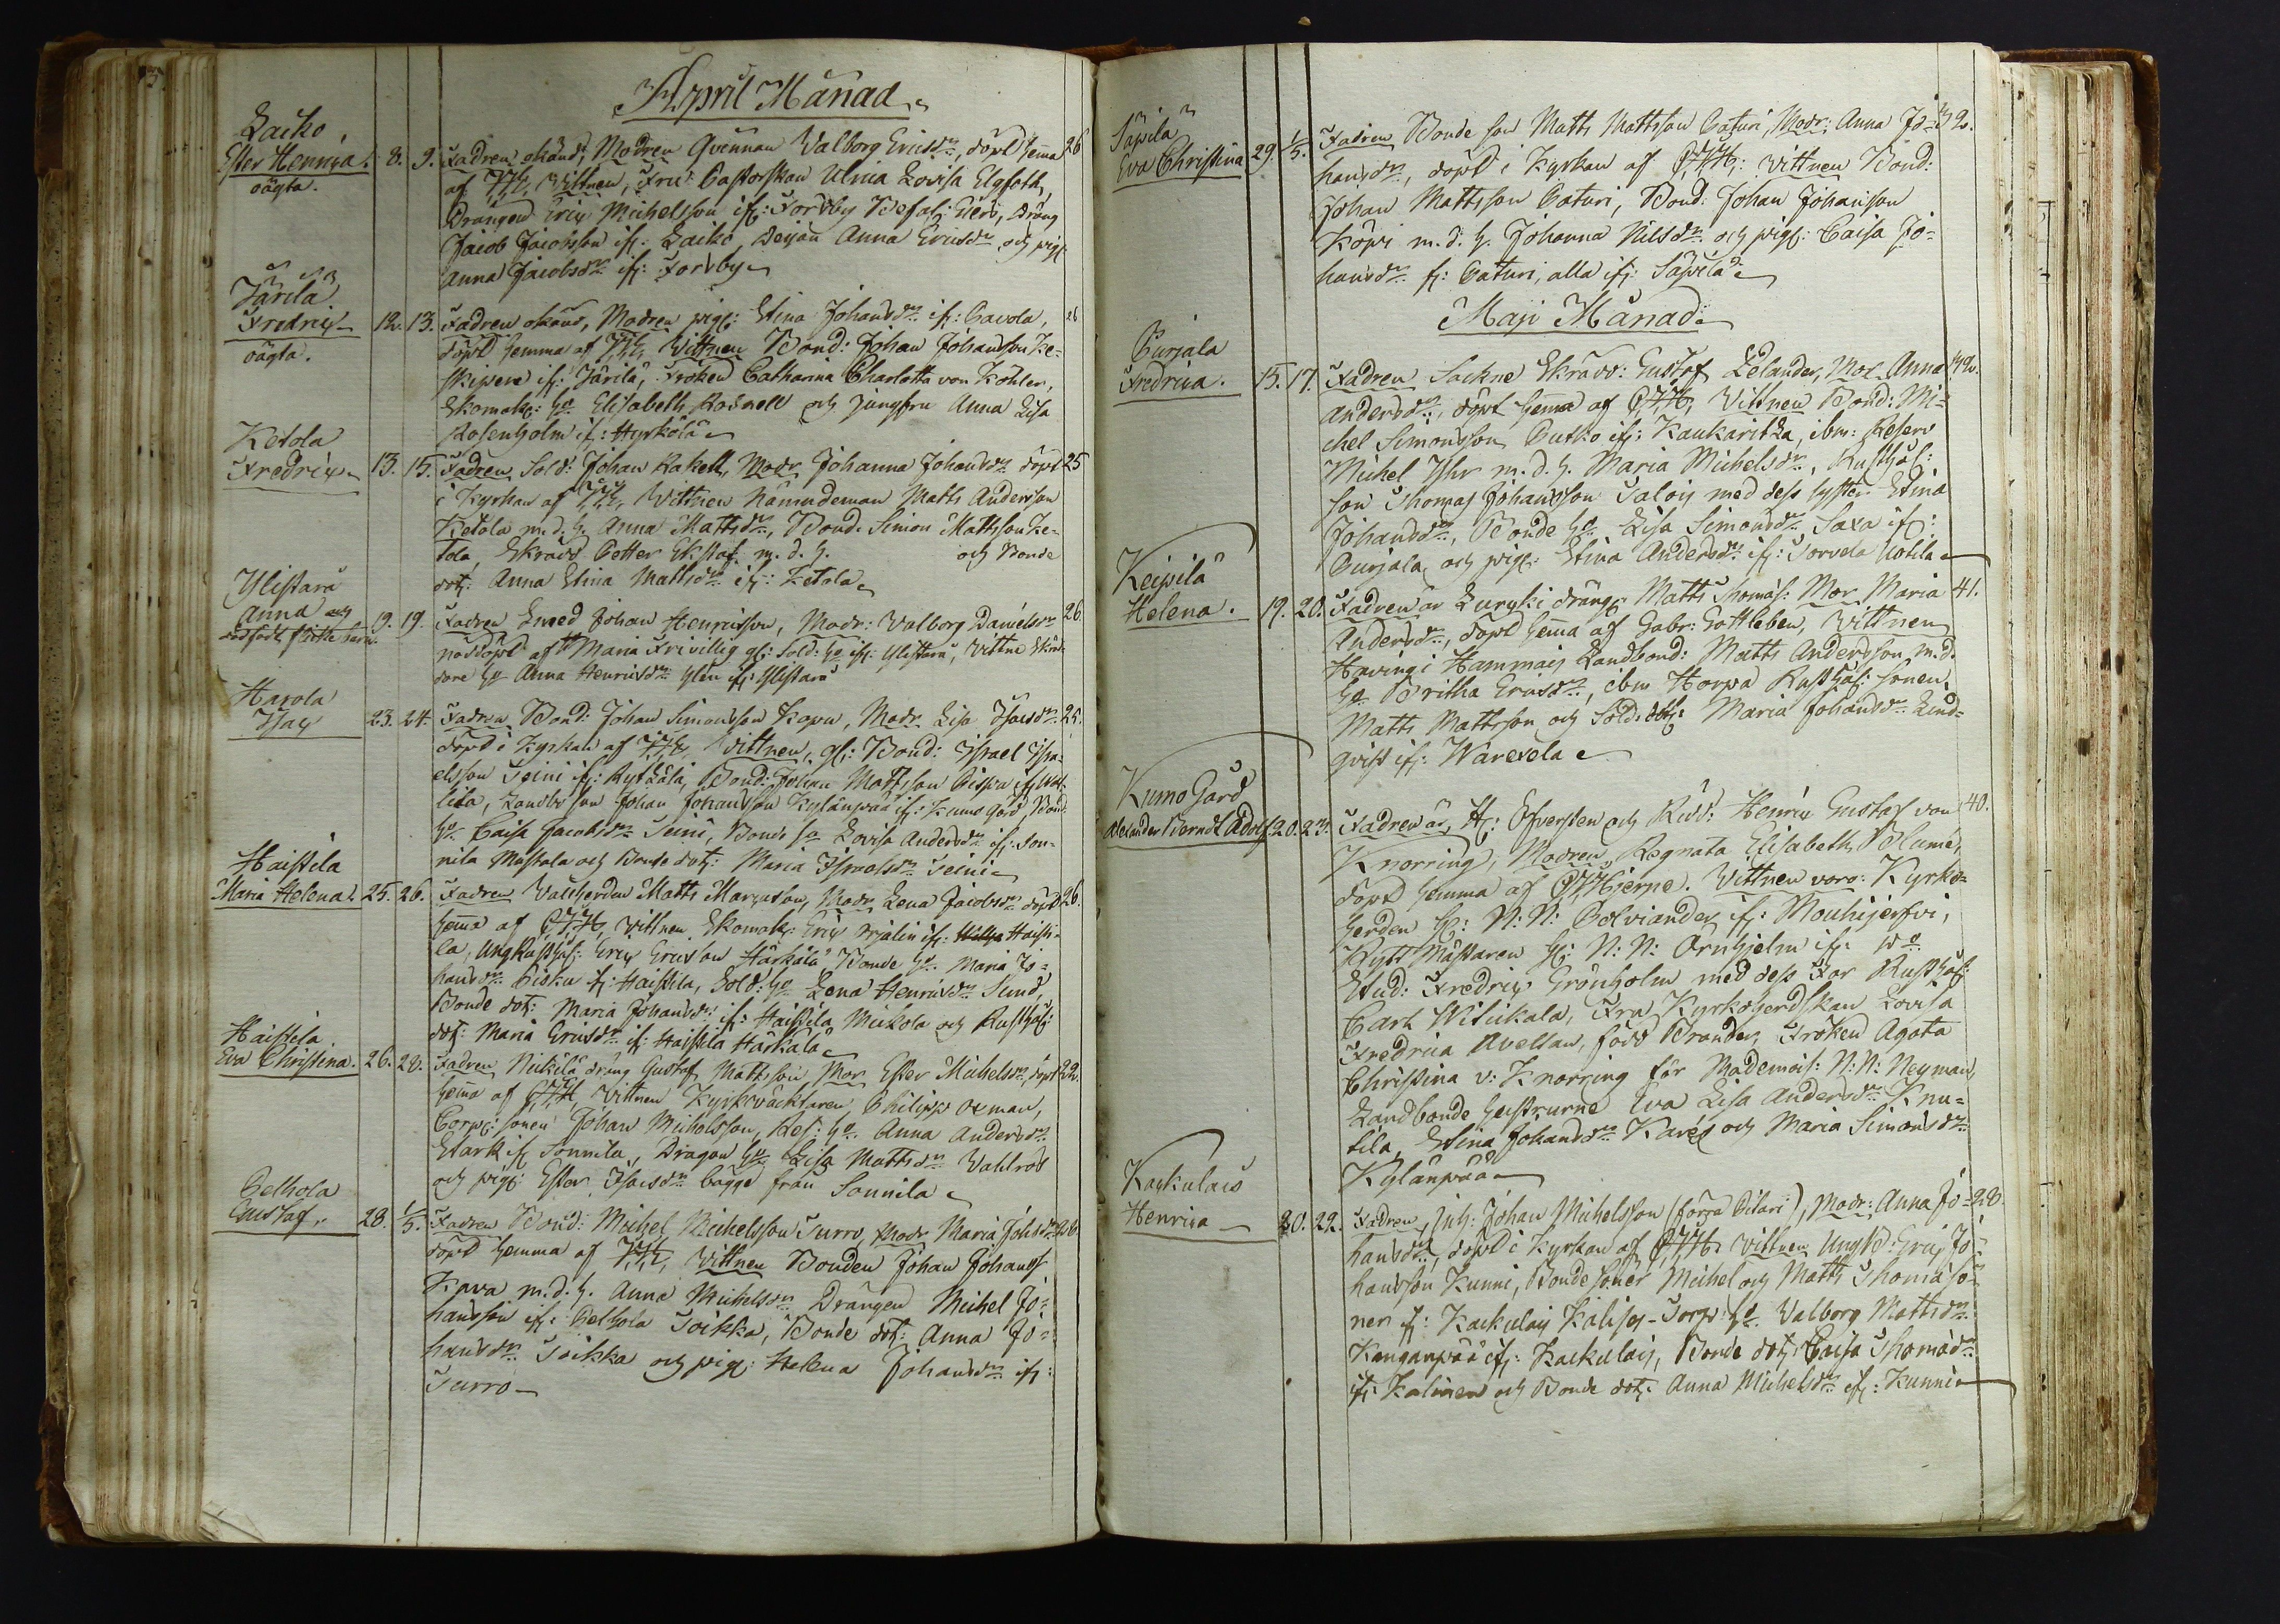 April Månad
Laiko
Ester Henrica. 8. 9. Fadren okänd, Modren Qvinnan Valborg Ericsdr, döpt hema 26
oägta.
af Vittnen, Fru Pastorskan Ulrica Lovisa Elgfoth,
Drängen Eric Michelsson if: Forsby Befal: Gerd, dräng
Jacob Jacobsson if: Laiko, Deijan Anna Ericsdr och pig:
Anna Jacobsdr if: Forsby
Järilä
Fredric 12. 13. Fadren okänd, Modren pig: Stina Johansdr if: Pavola, 26
oägta.
döpt hemma af Vittnen Bond: Johan Johansson Ke-
skipere if: Järilä, Fröken Catharina Charlotta von Köhler,
Skomak: ho Elisabeth Rosnell och Jungfru Anna Lisa
Rosenholm if: Hyrkölä
Ketola
Fredric 13. 15. Fadren Sold: Johan Rakell, Modr Johanna Johansdr döpt 25
i Kyrkan af Vittnen Nämndeman Matts Andersson
Ketola m. d. h. Anna Mattsdr, Bond. Simon Mattsson Ke-
tola, Skrädd Petter Ekstaf m. d. h. och Bonde
dot: Anna Stina Mattsdr if: Ketola
Ylistarå
Anna och 19. 19. Fadren Smed Johan Henricsson, Modr: Valborg Danielsdr 26
dödfödt flicke barn
nöddöpt af Maria Frivillig gl: Sold: ho if: Ylistarå, Vittne Skräd-
dare ho Anna Henricsdr Ylen if: Ylistarå
Harola
Isac 23. 24. Fadren Bond: Johan Simonsson Kapu, Modr Lisa Isacsdr 25.
döpt i Kyrkan af Vittnen, gl: Bond: Israel Isra-
elsson Seini if: Ryfkälä, Bond: Johan Mattsson Pispa if:
lila, Landbo son Johan Johansson Kylänpää if: Kumo gård, Bond
ho Caisa Jacobsdr Seini, Bonde ho Lovisa Andersdr if: Son-
nila Mastala och Bonde dot: Maria Israelsdr Seini
Haistila
Maria Helena. 25. 26. Fadren Vallherden Matts Marcusson, Modr Lena Jacobsdr döpt 26.
hema af Vittnen Skomak: Eric if: Haisti-
la, Ung Rusthål: Eric Ericsson Härkälä Bonde ho Maria Jo-
hansdr Pisku if: Haistila, Sold: ho Lena Henricsdr Sund,
Bonde dot: Maria Johansdr if: Haistila Mickola och Rusthål:
dot: Maria Ericsdr if: Haistila Härkälä
Haistila
Eva Christina. 26. 28. Fadren Nickilä dräng Gustaf Mattsson, Mor Ester Michelsdr, döpt 22.
hema af Vittnen Kyrkväcktaren Philipp Oxman,
Corp: sonen Johan Michelsson, Ref: ho Anna Andersdr
Stark if Sonnila, Dragon ho Lisa Mattsdr Vahlros
och pig: Ester Isacsdr bägge från Sonnila
Pelhola
Gustaf. 28. 1/5. Fadren Bond: Michel Michelsson Turro, Modr Maria Johsdr
döpt hemma af Vittnen Bonden Johan Johans
Kara m. d. h. Anna Michelsdr Drängen Michel Jo-
hansson if: Pelhola Toikka, Bonde dot: Anna Jo-
hansdr Toikka och pig: Helena Johansdr if:
Turro
Säpilä
Eva Christina 29. 1/5. Fadren Bonde son Matts Mattsson Paturi, Modr: Anna Jo- 32.
hansdr, döpt i Kyrkan af Vittnen Bond:
Johan Mattsson Paturi, Bond: Johan Johansson
Köpi m. d. h. Johanna Nilsdr och pig: Caisa Jo-
hansdr f: Paturi, alla if: Säpilä
Maji Månad
Purjala
Fredrica. 15. 17. Fadren Sockne Skrädd: Gustaf Zelander, Mor Anna 32.
Andersdr, döpt hema af Vittnen Bond: Mi-
chel Simonsson Putko if: Kaukaritza, ibm: Reserv
Michel Yhr m. d. h. Maria Michelsdr, Rusthål:
son Thomas Johansson Talois med dess syster Stina
Johansdr, Bonde ho Lisa Simonsdr Saxa if:
Purjala och pig: Stina Andersdr if: Torvela Uotila
Keipilä
Helena. 19. 20. Fadren är Luryki dräng Matts Thomas: Mor Maria 41.
Andersdr, döpt hema af Gabr: Gottleben, Vittnen
Havingi Hammais Landbond: Matts Andersson m. d.
ho Britha Ericsdr, ibm Horpa Rusthål: sonen
Matts Mattsson och Sold: dot: Maria Johansdr Lind-
qvist if: Warevela
Kumo Gård
Alexander Berndt Adolf 20. 23. Fadren är, H: Öfversten och Ridd: Henric Gustaf von 40.
Knorring, Modren, Regnata Elisabeth Blumé,
döpt hemma af Hjerne. Vittnen voro: Kyrko-
herden H: N: N: Polviander if: Mouhijerfvi,
Rytt Mästaren H: N: N: Örnhjelm if:
Stud: Fredric Grönholm med dess Far Rusthål:
Carl Witikala, Fru Kyrkoherdskan Lovisa
Fredrica Avellan, född Brander, Fröken Agata
Christina v: Knorring för Mademois: N: N: Neyman,
Landbonde hustrurne Eva Lisa Andersdr Knu-
tila, Stina Johansdr Karés och Maria Simonsdr
Kylänpää
Kackulais
Henrica 20. 22. Fadren Inh: Johan Michelsson (förra Pitari), Modr: Anna Jo- 28.
hansdr, döpt i Kyrkan af Vittnen Ungk: Eric Jo-
hansson Kunni, Bonde söner Michel och Matts Thomæ sö-
ner if: Kackulais Kalisch-Torp: ho Valborg Mattsdr
Kanganpää if: Kackulais, Bonde dot: Caisa Thomæsdr
if: Kalinen och Bonde dot: Anna Michelsdr if: Kunni